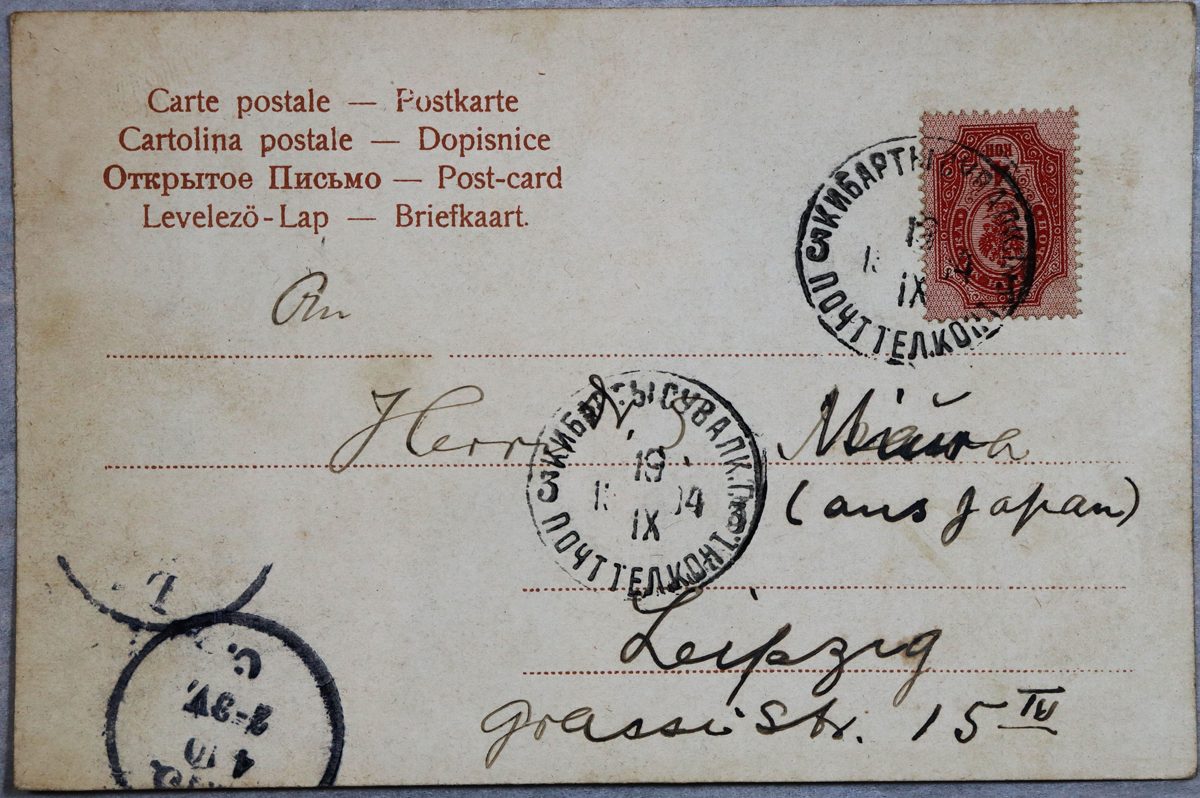 Carte postale — Postkarte
Cartolina postale — Dopisnice
Открытое Письмо — Post-card
Levelezö-Lap — Briefkaart.
КИБАРТЫ СУВАЛК. Г.
19
IX
ПОЧТ ТЕЛ. КОНТ.
An
Herrn
(aus Japan)
КИБАРТЫ СУВАЛК. Г.
19
IX 04
ПОЧТ ТЕЛ. КОНТ.
3 3
Leipzig
Grassistr. 15 IV